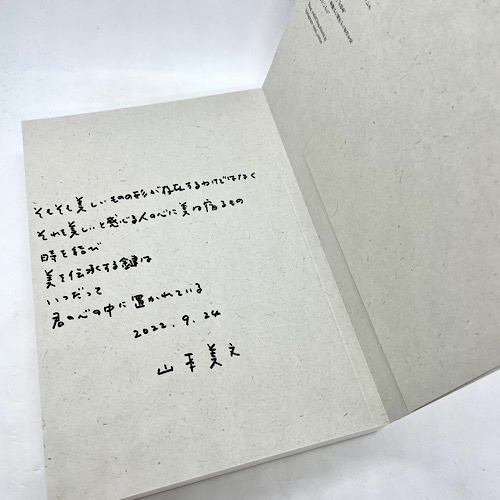 そもそも美しいものの形が存在するわけではなく
それを美しいと感じる人の心に美は宿るもの
時を結び
美を伝承する鍵は
いつだって
君の心の中に置かれている
2022.9.24
山本美文